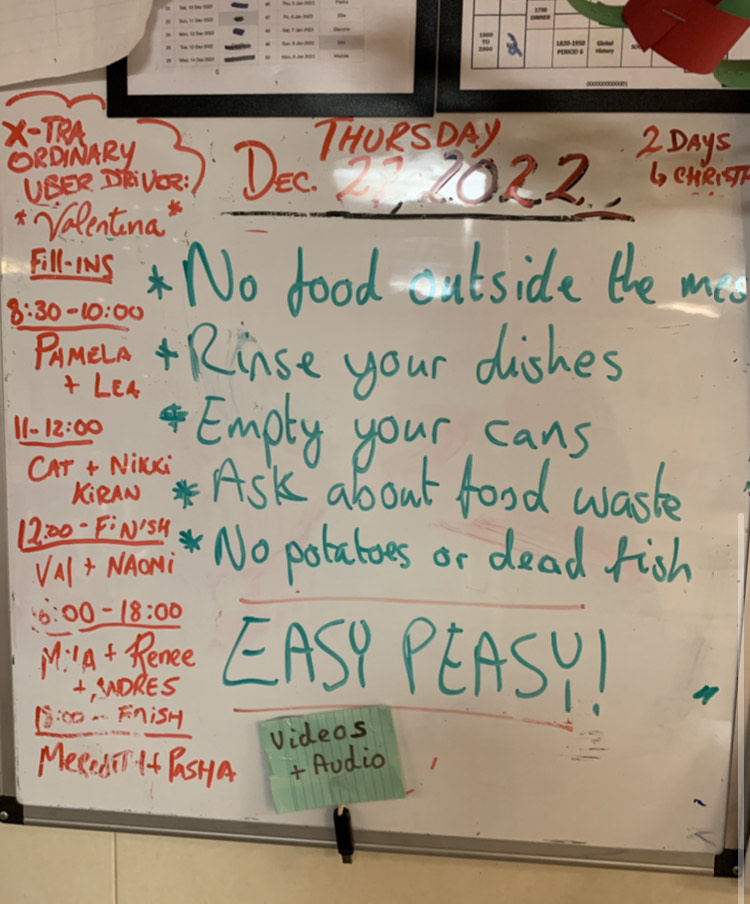 1790
DINNER
1900
TO
2000
1820-1950
PERIOD 6
Global
History
X-TRA
ORDINARY
UBER DRIVER:
*Valentina*
Fill-INS
8:30-10:00
PAMELA
+ LEA
11-12:00
CAT + NiKKi
KiRAN
12:00-FiNiSH
VAl + NAOMi
:00-18:00
MilA + Renee
+ ANDRES
:00 - FiNiSH
MEREDITH + PASHA
THURSDAY
DEC. 22, 2022
2 DAYS
↳ CHRIST
* No food outside the mes
* Rinse your dishes
* Empty your cans
* Ask about food waste
* No potatoes or dead fish
EASY PEASY!
Videos
+ Audio